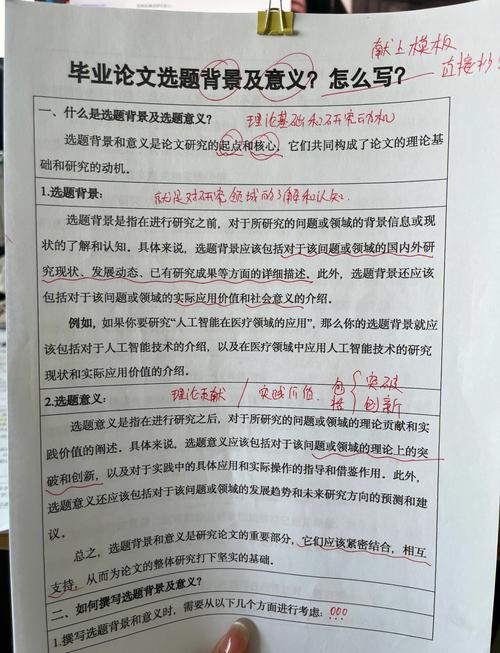 献上模板
直接抄
毕业论文选题背景及意义？怎么写？
一、什么是选题背景及选题意义？
理论基础和研究动机
选题背景和意义是论文研究的起点和核心，它们共同构成了论文的理论基
础和研究的动机。
1.选题背景：
就是对研究领域的了解和认知
选题背景是指在进行研究之前，对于所研究的问题或领域的背景信息或现
状的了解和认知。具体来说，选题背景应该包括对于该问题或领域的国内外研
究现状、发展动态、已有研究成果等方面的详细描述。此外，选题背景还应该
包括对于该问题或领域的实际应用价值和社会意义的介绍。
例如，如果你要研究“人工智能在医疗领域的应用”，那么你的选题背景就应
该包括对于人工智能技术的介绍，以及在医疗领域中应用人工智能技术的研究
现状和实际应用价值的介绍。
2.选题意义：
理论贡献/实践价值 包括{突破
创新
选题意义是指在进行研究之后，对于所研究的问题或领域的理论贡献和实
践价值的阐述。具体来说，选题意义应该包括对于该问题或领域的理论上的突
破和创新，以及对于实践中的具体应用和实际操作的指导和借鉴作用。此外，
选题意义还应该包括对于该问题或领域的发展趋势和未来研究方向的预测和建
议。
总之，选题背景和意义是研究论文的重要部分，它们应该紧密结合，相互
支持，从而为论文的整体研究打下坚实的基础。
二、如何撰写选题背景及意义？
1.撰写选题背景和意义时，需要从以下几个方面进行考虑：